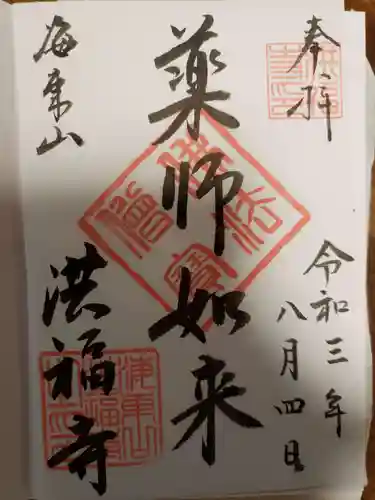 奉拝
令和三年
八月四日
薬師如来
海東山
洪福寺